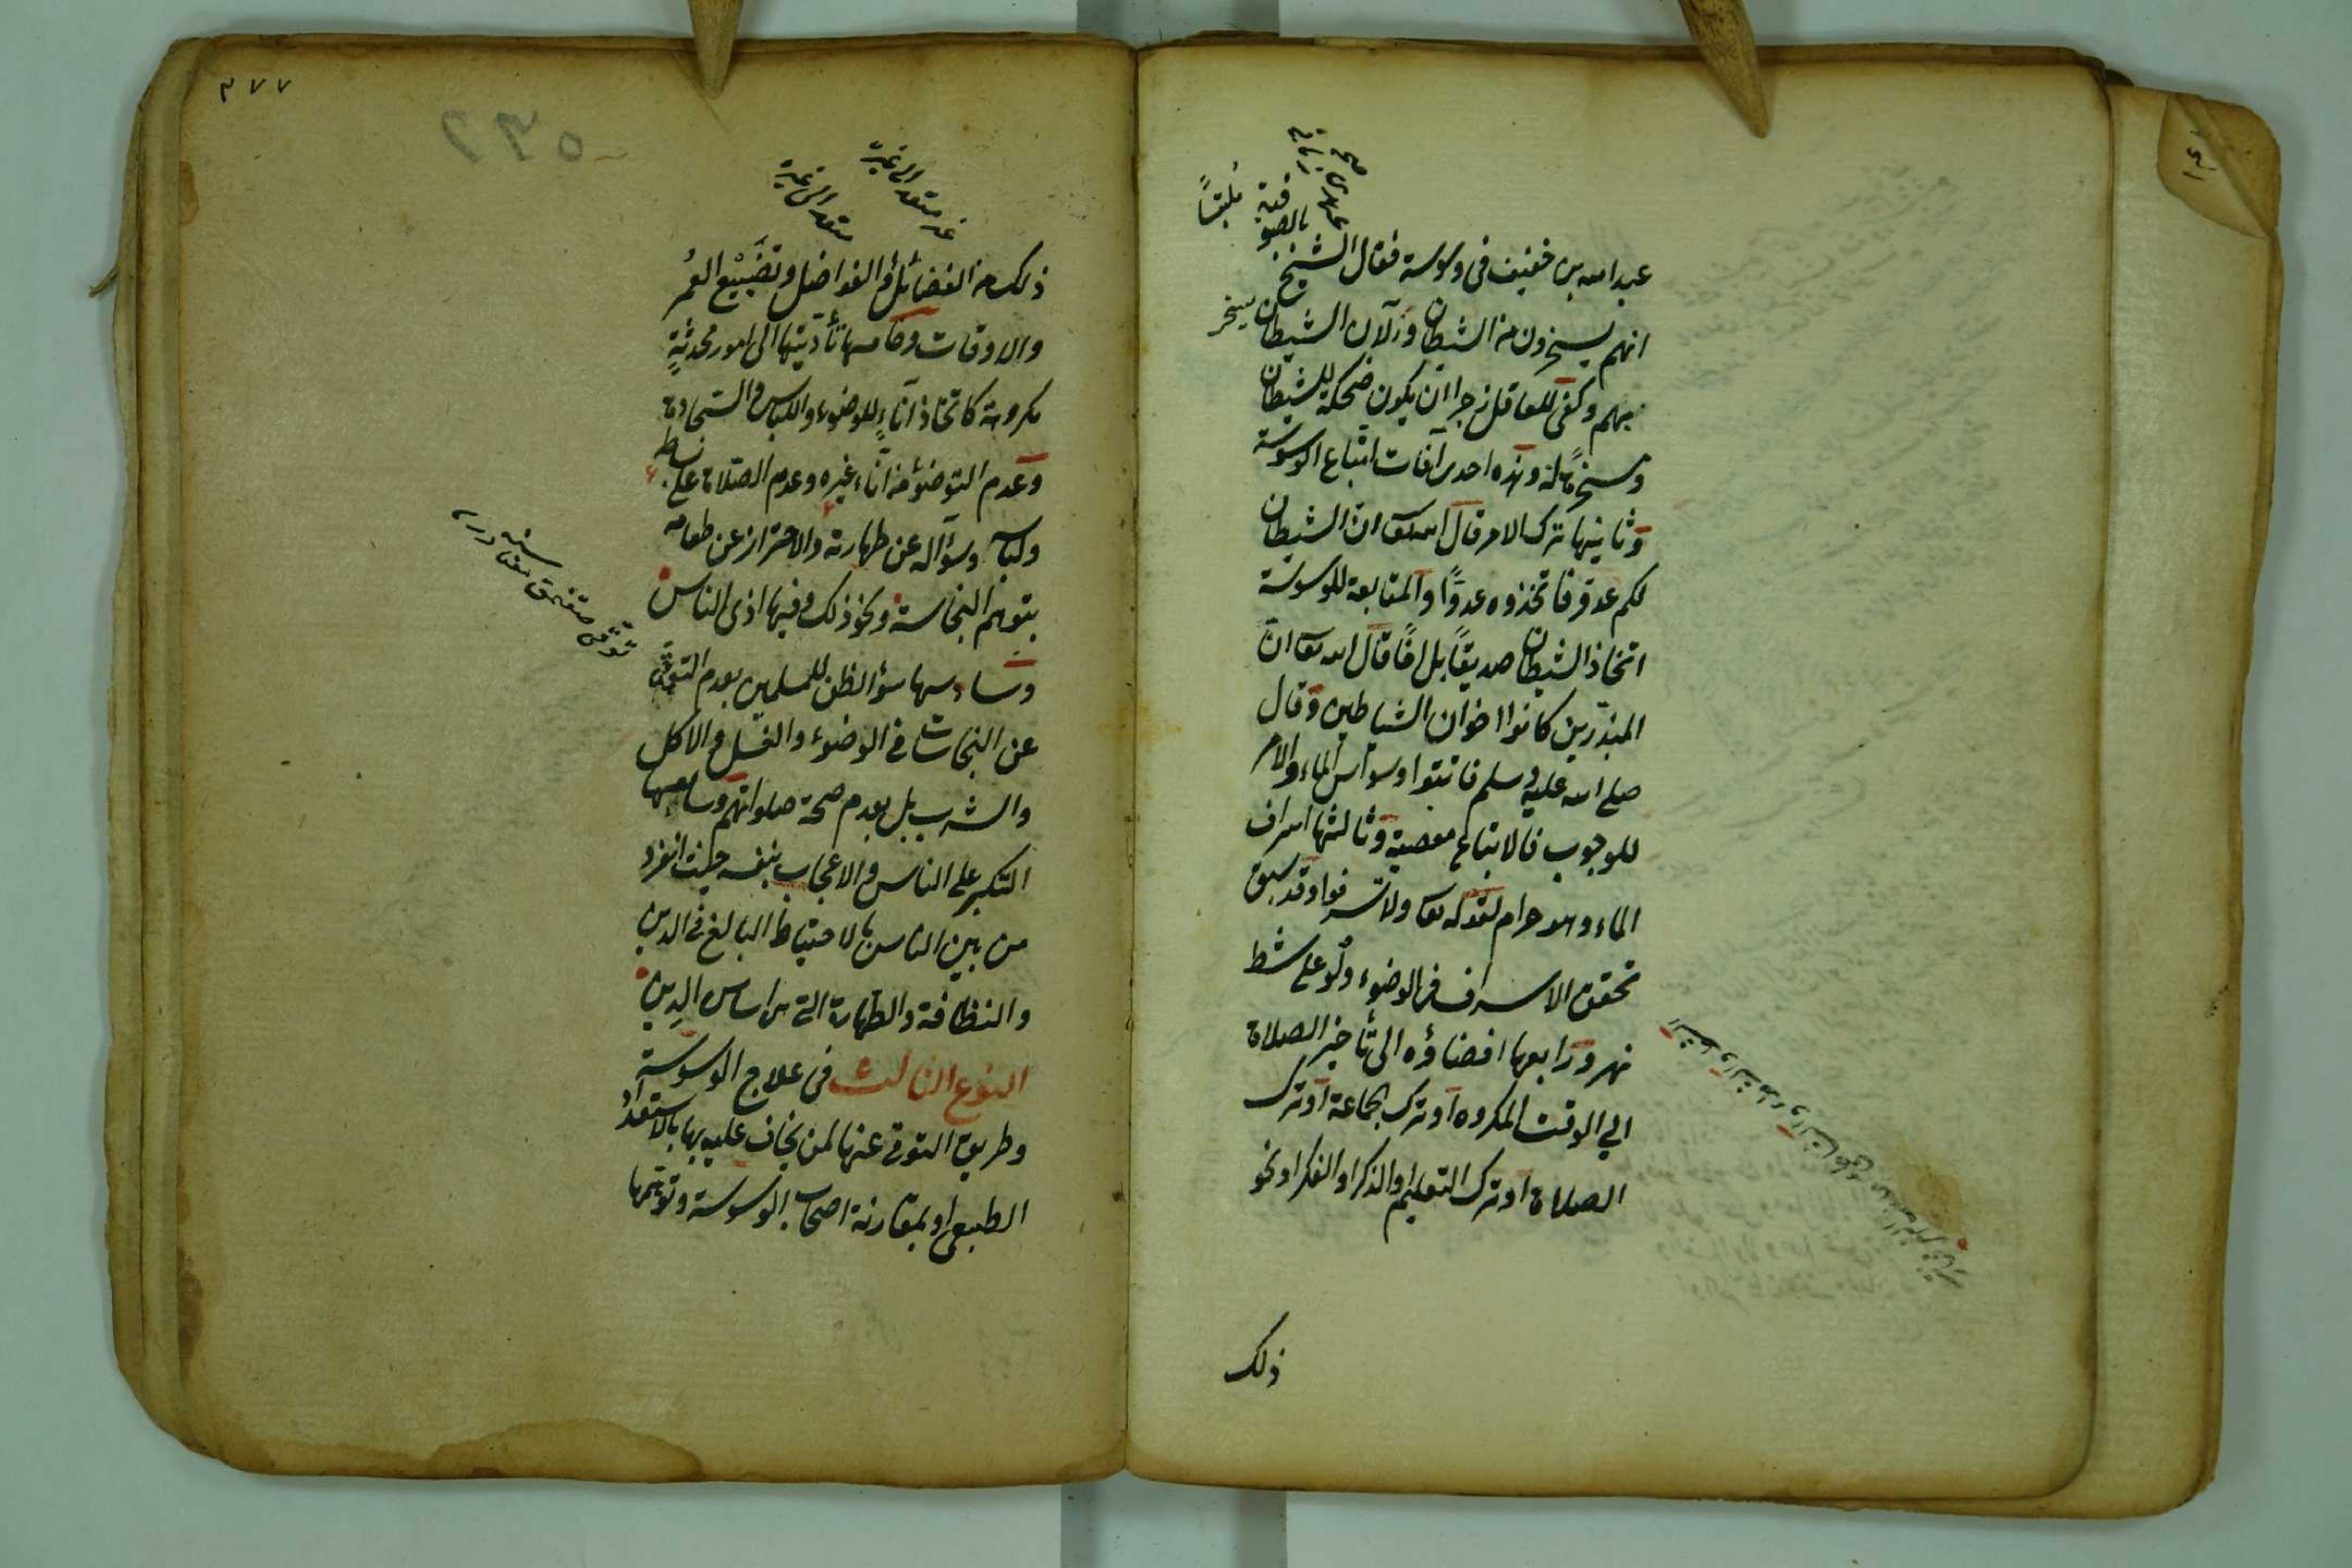 عبد الله بن خفيف فى وسوسة فقال الشيخ
عهدى بالصوفية
صح
انهم يسخرون من الشيطان والآن الشيطان يسخر
بهم وكفى للعاقل زجرا ان يكون ضحكة للشيطان
ومسخرة له وهذه احدى آفات اتباع الوسوسة
وثانيها ترك الامر قال الله تع ان الشيطان
لكم عدو فاتخذوه عدوًّا والمتابعة للوسوسة
اتخاذ الشيطان صديقًا بل اخًا قال الله تع ان
المبذّرين كانوا اخوان الشياطين وقال
صلى الله عليه وسلم فاتقوا وسواس الماء والامر
للوجوب فالاتباع معصية وثالثها اسراف
الماء وهو حرام لقوله تع ولا تسرفوا وقد سبق
تحقق الاسراف فى الوضوء ولو على شط
نهر ورابعها افضاؤه الى تأخير الصلاة
الى الوقت المكروه او ترك الجماعة او ترك
الصلاة او ترك التعليم او الذكر او الفكر او نحو
ذلك
٣٧٧
٥٣٢
غير متعد الى غيره
متعد الى غيره
ذلك من الفضائل والفواضل وتَضْيِيع العُمر
والاوقات وخامسها تأدّيتها الى امور محدثةٍ
مكروهة كاتخاذ اناءٍ للوضوء واللباس والسجادة
وعدم التوضؤ من اناء غيره وعدم الصلاة على بساط
ولباسه وسؤاله عن طهارته والاحتراز عن طعامه
بتوهم النجاسة ونحو ذلك وفيها اذى الناس
وسادسها سوء الظن للمسلمين بعدم التوقى
عن النجاسات فى الوضوء والغسل والاكل
والشرب بل بعدم صحة صلواتهم وسابعها
التكبر على الناس والاعجاب بنفسه حيث انفرد
من بين الناس بالاحتياط البالغ فى الدين
والنظافة والطهارة التى هى اساس الدين
النوع الثالث فى علاج الوسوسة
وطريق التوقى عنها لمن يخاف عليه بها بالاستعداد
الطبيعى او بمقارنة اصحاب الوسوسة وتوهمها